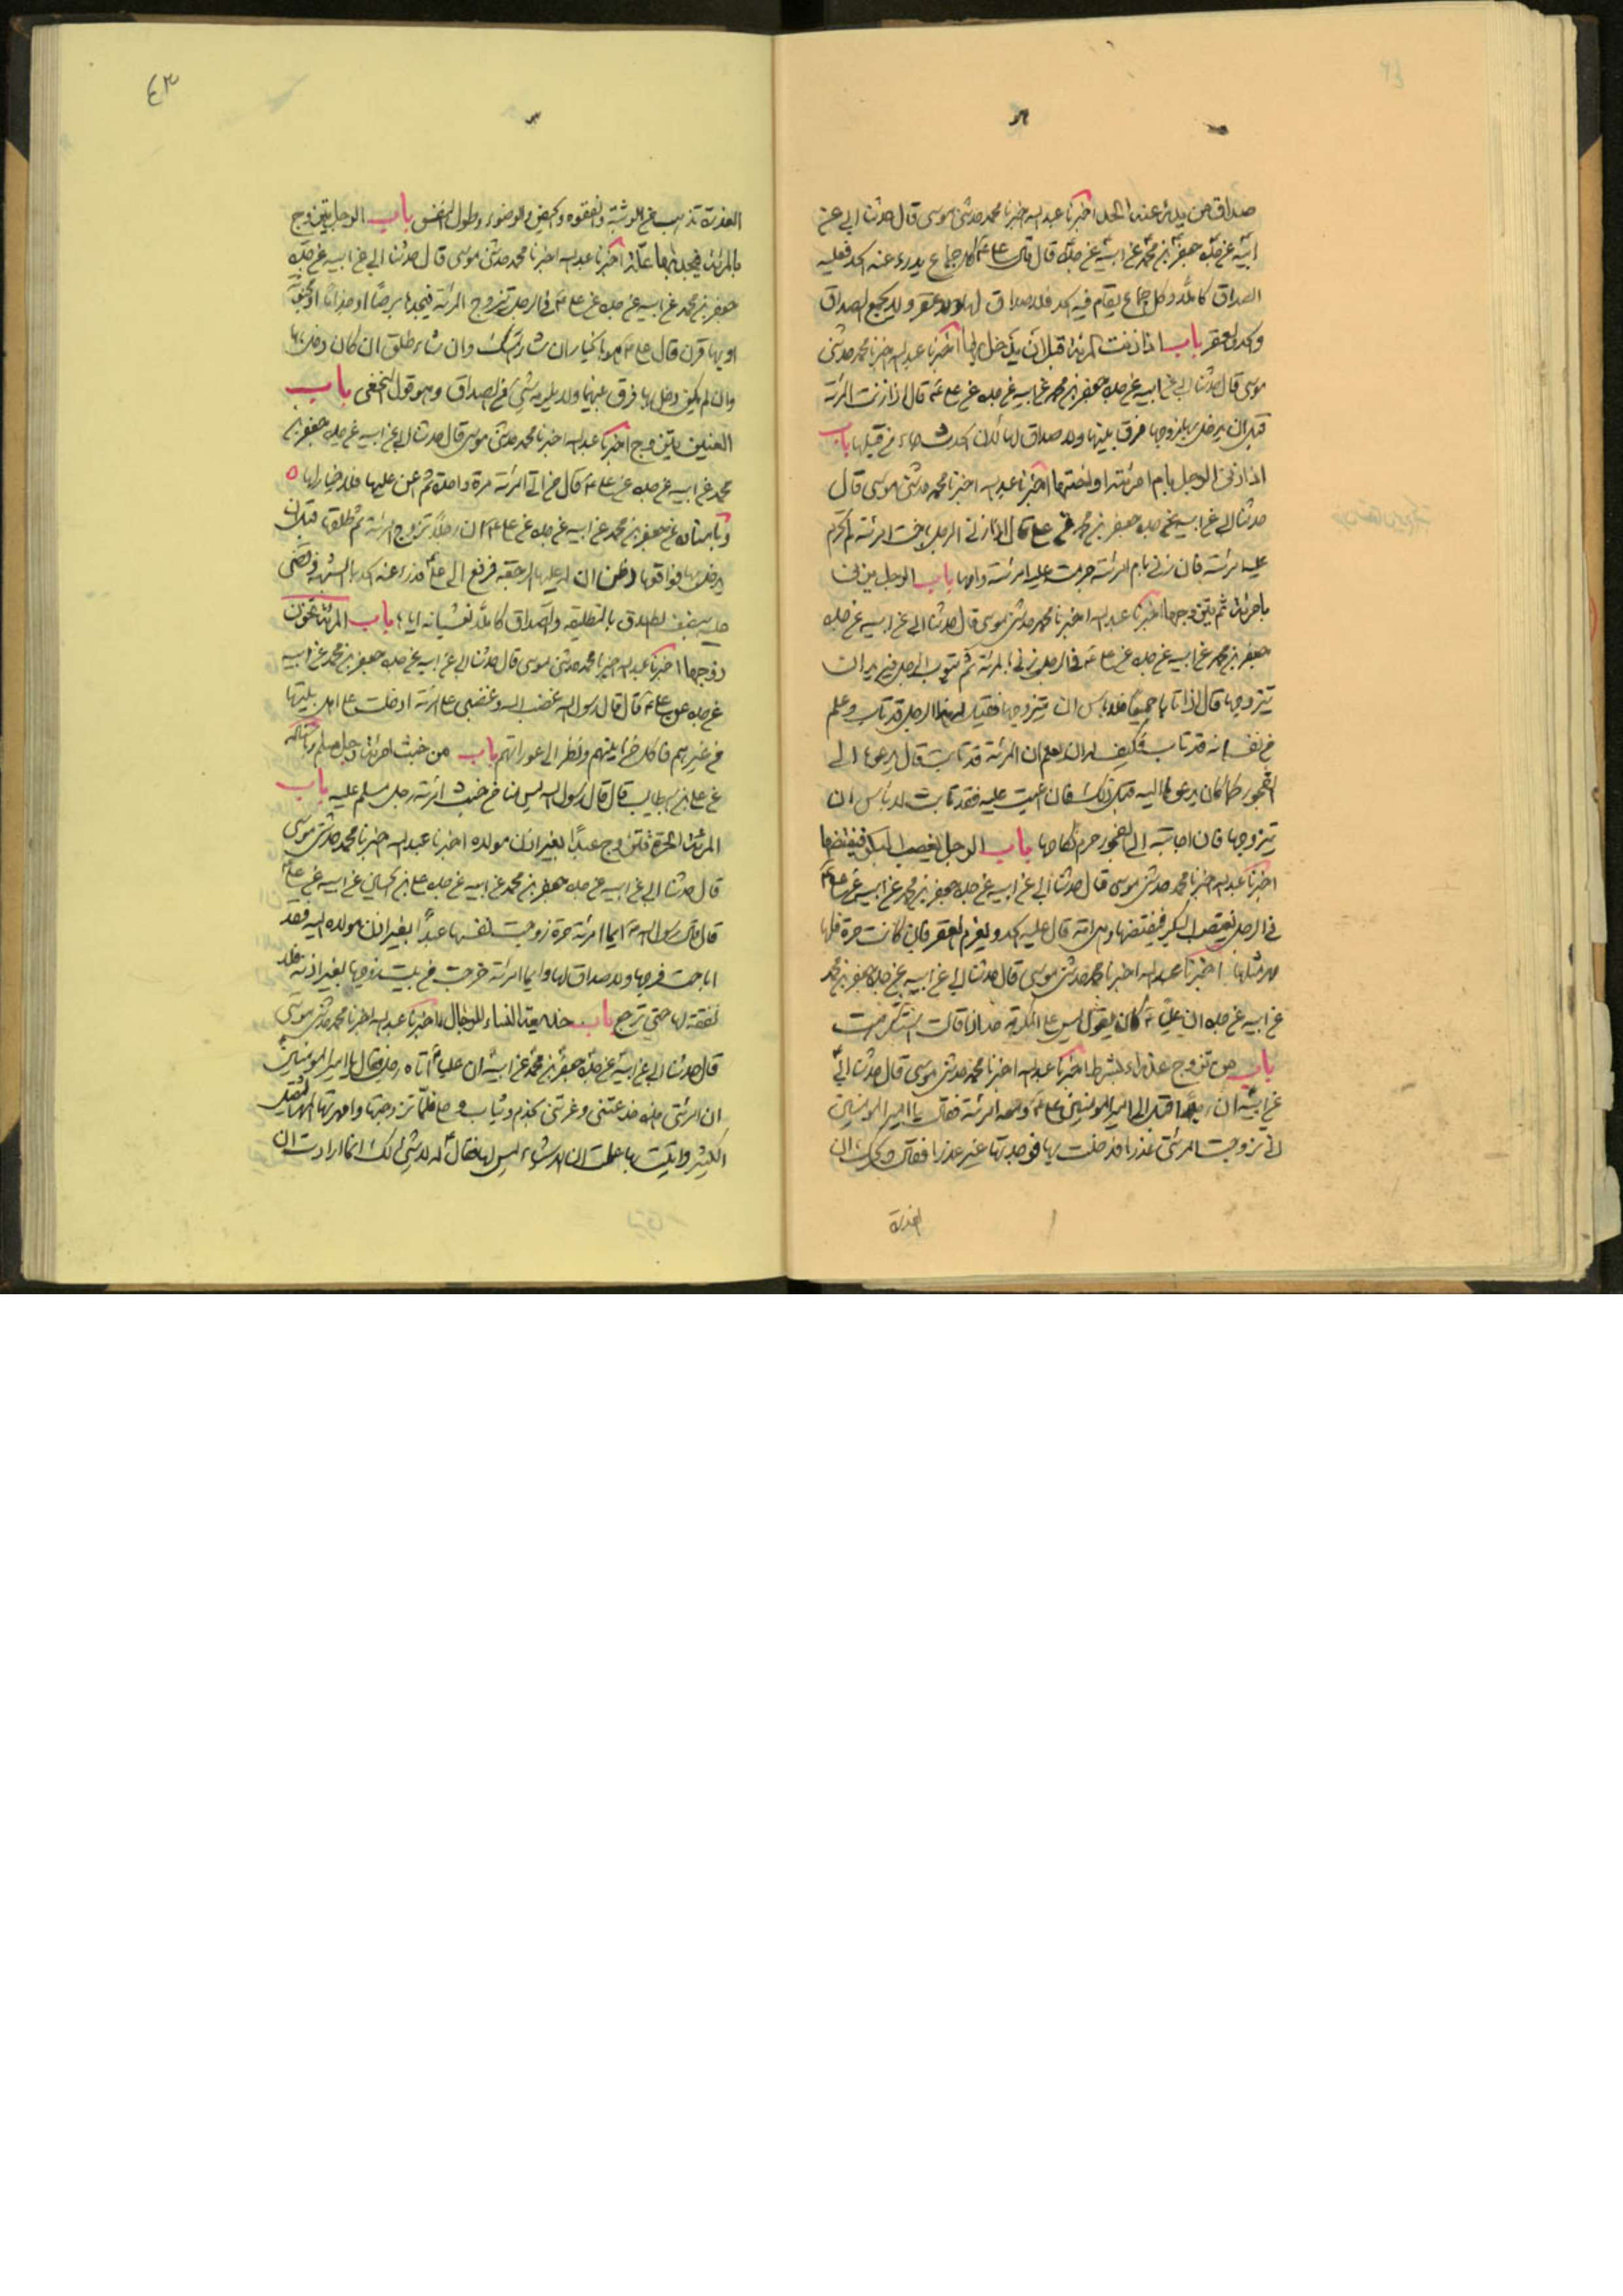 صداق من يدرئ عنه الحد اخبرنا عبد الله اخبرنا محمد حدثني موسى قال حدثنا ابي عن
ابيه عن جده جعفر بن محمد عن ابيه عن جده قال قال علي ع كل جماع يدرء عنه الحد فعليه
الصداق كاملا وكل جماع يقام فيه الحد فلا صداق لها ولا عقر ولا يجمع الصداق
والحد والعقر باب اذا زنت المرئة قبل ان يدخل بها اخبرنا عبد الله اخبرنا محمد حدثني
موسى قال حدثنا ابي عن ابيه عن جده جعفر بن محمد عن ابيه عن جده عن علي ع قال اذا زنت المرئة
قبل ان يدخل بها زوجها فرق بينهما ولا صداق لها لان الحدث جاء من قبلها باب
اذا زنى الرجل بام امرئته او ابنتها اخبرنا عبد الله اخبرنا محمد حدثني موسى قال
حدثنا ابي عن ابيه عن جده جعفر بن محمد عن علي قال اذا زنى الرجل باخت امرئته لم تحرم
عليه امرئته فان زنى بام امرئته حرمت عليه امرئته وامها باب الرجل يزني
بامرئة ثم يتزوجها اخبرنا عبد الله اخبرنا محمد حدثني موسى قال حدثنا ابي عن ابيه عن جده
جعفر بن محمد عن ابيه عن جده عن علي ع في الرجل يزني بالمرئة ثم يتوب الرجل فيريد ان
يتزوجها قال اذا تابا جميعا فلا باس ان يتزوجها فقيل له هذا الرجل قد تاب وعلم
من نفسه انه قد تاب فكيف له ان يعلم ان المرئة قد تابت قال يدعوها الى
الفجور كما كان يدعوها اليه قبل ذلك فان ابت عليه فقد تابت لا باس ان
يتزوجها فان اجابته الى الفجور حرم نكاحها باب الرجل يغصب البكر فيقتضها
اخبرنا عبد الله اخبرنا محمد حدثني موسى قال حدثنا ابي عن ابيه عن جده جعفر بن محمد عن ابيه عن علي ع
في الرجل يغتصب البكر فيقتضها وهي امة قال عليه الحد ويغرم العقر فان كانت حرة فلها
مهر مثلها اخبرنا عبد الله اخبرنا محمد حدثني موسى قال حدثنا ابي عن ابيه عن جده جعفر بن محمد
عن ابيه عن جده ان عليا ع كان يقول ليس على المستكرهة حد اذا قالت استكرهت
باب من تزوج عذراء بشرط اخبرنا عبد الله اخبرنا محمد حدثني موسى قال حدثنا ابي
عن ابيه ان رجلا اقبل الى امير المومنين علي ع ومعه امرئة فقال يا امير المومنين
اني تزوجت امرئتي عذرا فدخلت بها فوجدتها غير عذرا فقال ويحك ان
العذرة
٤٣
العذرة تذهب من الوثبة والقفزه والحيض والوضوء وطول التعنس باب الرجل يتزوج
بالمرئة فيجد بها علة اخبرنا عبد الله اخبرنا محمد حدثني موسى قال حدثنا ابي عن ابيه عن جده
جعفر بن محمد عن ابيه عن جده عن علي ع في الرجل يتزوج المرئة فيجدها برصا او جذاما او مجنونة
او بها قرن قال علي ع هو بالخيار ان شاء امسك وان شاء طلق ان كان دخل بها
وان لم يكن دخل بها فرق بينهما ولا يلزمه شئ من الصداق وهو قول النخعي باب
العنين يتزوج اخبرنا عبد الله اخبرنا محمد حدثني موسى قال حدثنا ابي عن ابيه عن جده جعفر بن
محمد عن ابيه عن جده عن علي ع قال من اتى امرئته مرة واحدة ثم عن عليها فلا خيار لها
وباسناده عن جعفر بن محمد عن ابيه عن جده عن علي ع ان رجلا تزوج امرئة ثم طلقها قبل ان
يدخل بها فواقعها وظن ان له عليها الرجعة فرفع الى علي فدرء عنه الحد بالشبهة وقضى
عليه بنصف الصداق بالتطليقة والصداق كاملا بغشيانه اياها باب المرئة تخون
زوجها اخبرنا عبد الله اخبرنا محمد حدثني موسى قال حدثنا ابي عن ابيه عن جده جعفر بن محمد عن ابيه
عن جده عن علي ع قال قال رسول الله غضب الله وغضبي على امرئة ادخلت على اهل بيتها
من غيرهم فاكل خزاينهم ونظر الى عوراتهم باب من خبث امرئة رجل مسلم
عن علي بن ابيطالب قال قال رسول الله ليس منا من خبث امرئة رجل مسلم عليه باب
المرئة الحرة تتزوج عبدا بغير اذن مولاه اخبرنا عبد الله اخبرنا محمد حدثني موسى
قال حدثنا ابي عن ابيه عن جده جعفر بن محمد عن ابيه عن جده علي بن الحسين عن ابيه عن علي ع
قال قال رسول الله ايما امرئة حرة زوجت نفسها عبدا بغير اذن مولاه اليه فقد
اباحت فرجها ولا صداق لها وايما امرئة خرجت من بيت زوجها بغير اذنه فلا
نفقة لها حتى ترجع باب خديعة النساء للرجال اخبرنا عبد الله اخبرنا محمد حدثني موسى
قال حدثنا ابي عن ابيه عن جده جعفر بن محمد عن ابيه ان عليا ع اتاه رجل فقال يا امير المومنين
ان امرئتي هذه خدعتني وغرتني بخدم وثياب فلما تزوجتها وامهرتها المهر الثقيل
الكثير وابتنيت بها علمت ان الاشياء ليس لها فقال له لا شئ لك انما ارادت ان